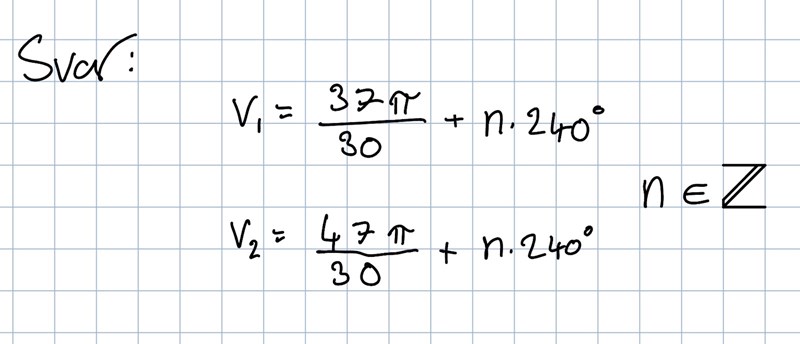 Svar:
V₁ = 37π/30 + n·240°
n ∈ ℤ
V₂ = 47π/30 + n·240°